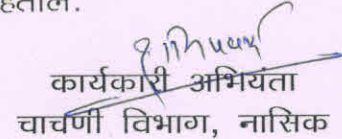 हताल.
कार्यकारी अभियंता
चाचणी विभाग, नासिक